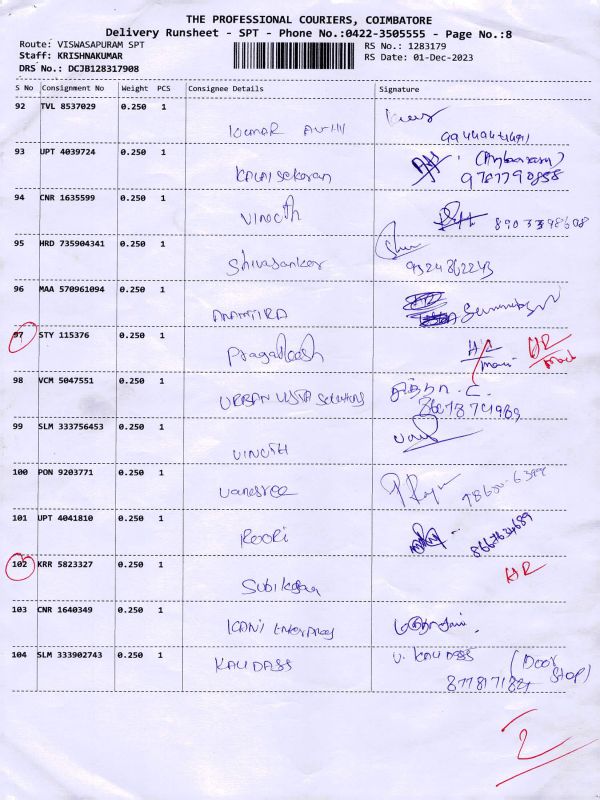 THE PROFESSIONAL COURIERS, COIMBATORE
Delivery Runsheet - SPT - Phone No.:0422-3505555 - Page No.:8
Route: VISWASAPURAM SPT RS No.: 1283179
Staff: KRISHNAKUMAR RS Date: 01-Dec-2023
DRS No.: DCJB128317908
S No Consignment No Weight PCS Consignee Details Signature
92 TVL 8537029 0.250 1
Kumar
93 UPT 4039724 0.250 1
Kalai Sekaran
94 CNR 1635599 0.250 1
Vinoth
95 HRD 735904341 0.250 1
Shivasankar 9524862243
96 MAA 570961094 0.250 1
97 STY 115376 0.250 1
Pragatheesh
98 VCM 5047551 0.250 1
URBAN VISTA Solutions
99 SLM 333756453 0.250 1
VINOTH
100 PON 9203771 0.250 1
Vanesree
101 UPT 4041810 0.250 1
102 KRR 5823327 0.250 1
103 CNR 1640349 0.250 1
ICANI Enterprises
104 SLM 333902743 0.250 1
KALIDASS V. KALIDASS (Door
Stop)
2